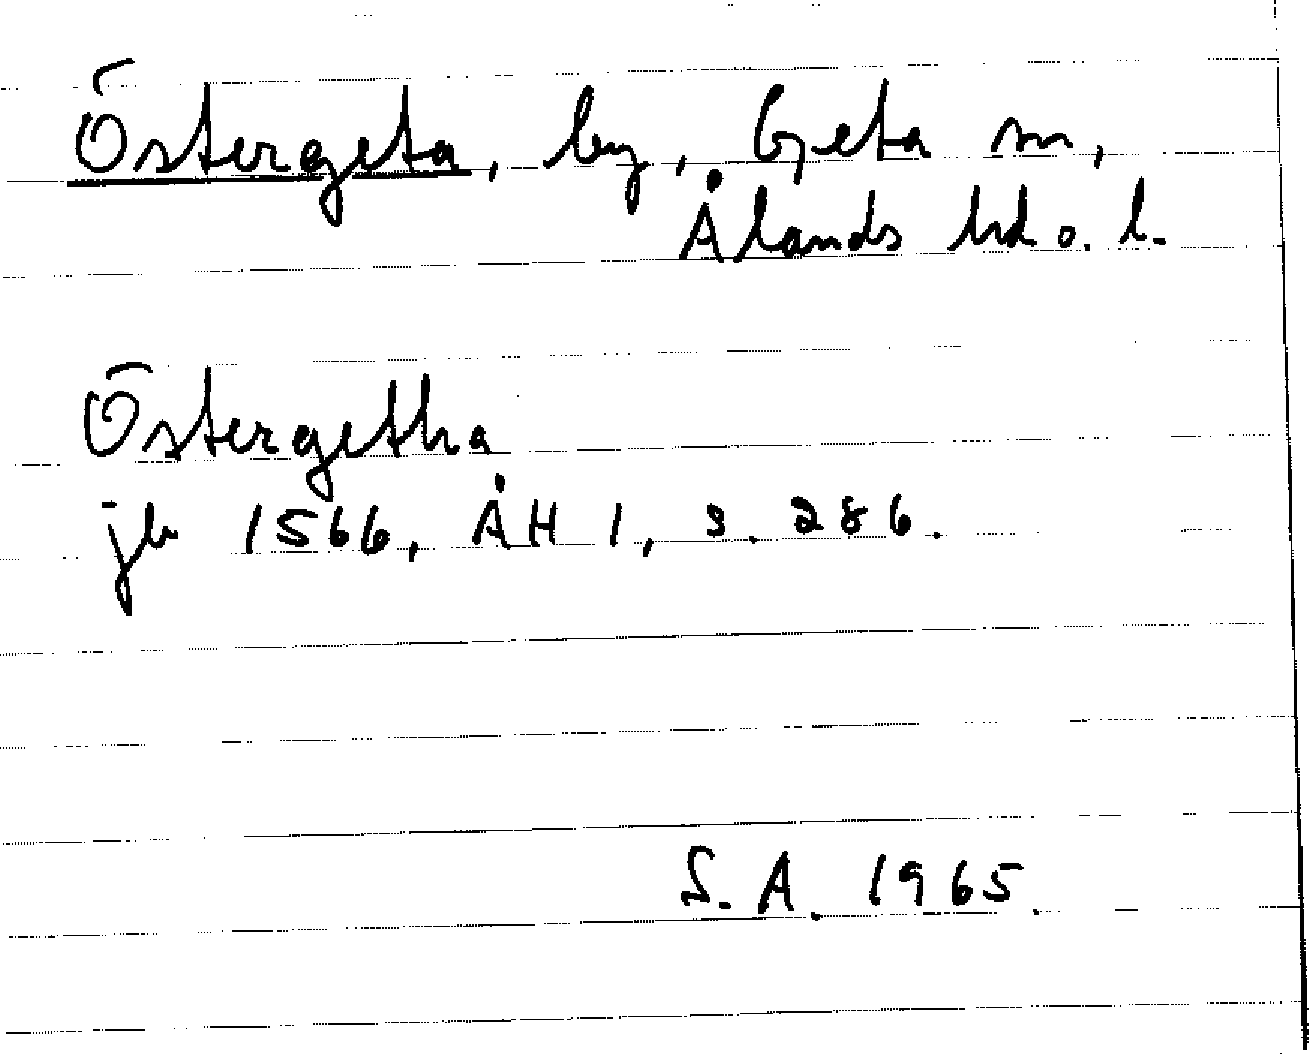 Östergeta, by, Geta sn,
Ålands hd o. l.
Östergetha
jb 1566, ÅH 1, s. 286.
S. A. 1965.